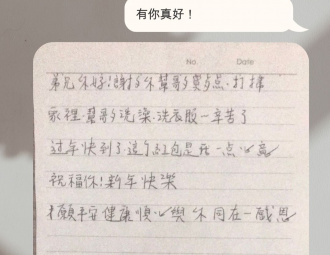 有你真好！
No.
Date
弟兄你好！謝謝你幫哥買多点、打掃
家裡、幫哥多洗澡、洗衣服一辛苦了
过年快到了、這个紅包是我一点心意
祝福你！新年快楽
願平安健康順心與你同在一感恩